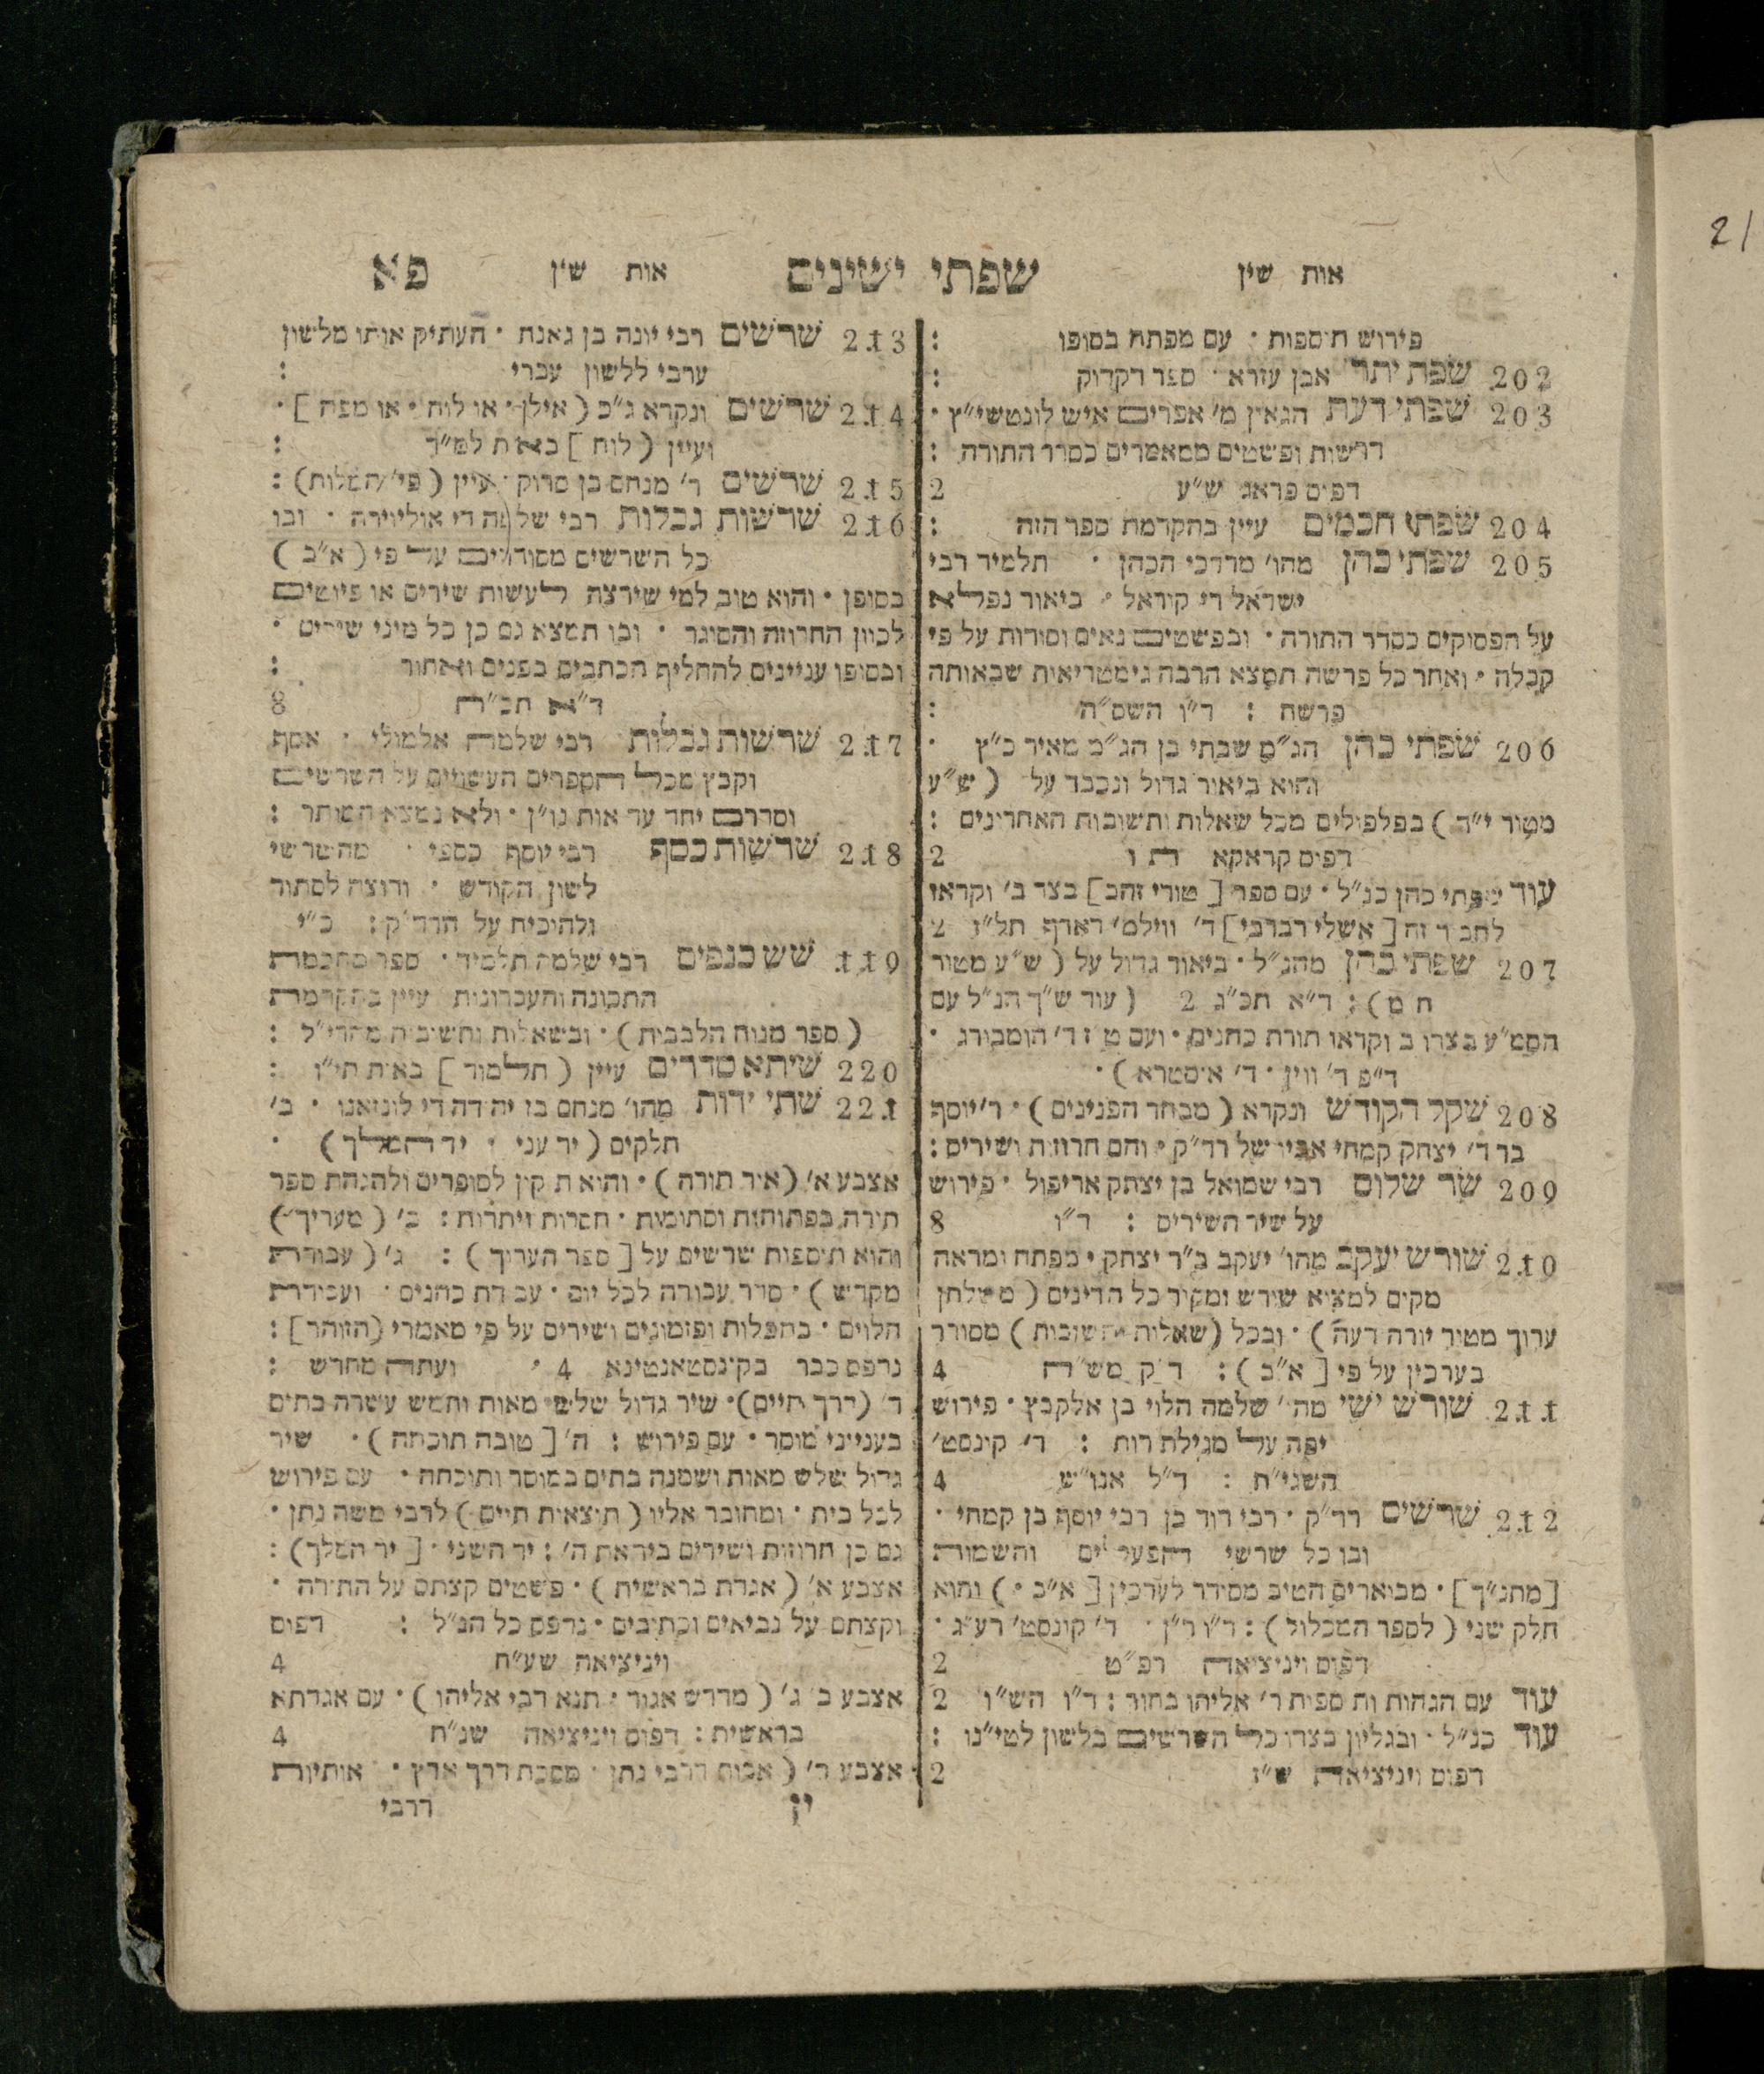 אות שין שפתי ישינים אות שין פא
פירוש תוספות · עם מפתח בסופו :
202 שפת יתר אבן עזרא · ספר דקדוק :
203 שפתי דעת הגאון מ׳ אפרים איש לונטשי״ץ ·
דרשות ופשטים ממאמרים כסדר התורה :
דפוס פראג ש״ע 2
204 שפתי חכמים עיין בהקדמת ספר הזה :
205 שפתי כהן מהו׳ מרדכי הכהן · תלמיד רבי
ישראל די קוראל · ביאור נפלא
על הפסוקים כסדר התורה · ובפשטים נאים וסודות על פי
קבלה · ואחר כל פרשה תמצא הרבה גימטריאות שבאותה
פרשה : ד״ו השס״ה :
206 שפתי כהן הג״מ שבתי בן הג״מ מאיר כ״ץ ·
והוא ביאור גדול ונכבד על ( ש״ע
מטור י״ד ) בפלפולים מכל שאלות ותשובות האחרונים :
דפוס קראקא ת ו 2
עוד שפתי כהן כנ״ל · עם ספר [ טורי זהב ] בצד ב׳ וקראו
לחבור זה [ אשלי רברבי ] ד׳ ווילמ׳ דארף תל״ז 2
207 שפתי כהן מהנ״ל · ביאור גדול על ( ש״ע מטור
ח מ ) : ד״א תכ״ג 2 ( עוד ש״ך הנ״ל עם
הסמ״ע בצדו ב וקראו תורת כהנים · ועם ט ז ד׳ הומבורג ·
ד״פ ד׳ ווין · ד׳ אוסטרא ) ·
208 שקל הקודש ונקרא ( מבחר הפנינים ) · ר׳ יוסף
בר ר׳ יצחק קמחי אביו של רד״ק · והם חרוזות ושירים :
209 שר שלום רבי שמואל בן יצחק אריפול · פירוש
על שיר השירים : ד״ו 8
210 שורש יעקב מהו׳ יעקב ב״ר יצחק · מפתח ומראה
מקום למצוא שורש ומקור כל הדינים ( משלחן
ערוך מטור יורה דעה ) · ובכל ( שאלות תשובות ) מסודר
בערכין על פי [ א״ב ) : ד ק מש״ח 4
211 שורש ישי מהו׳ שלמה הלוי בן אלקבץ · פירוש
יפה על מגילת רות : ד׳ קונסט׳
השני״ח : ד״ל אנו״ש 4
212 שרשים רד״ק · רבי דוד בן רבי יוסף בן קמחי ·
ובו כל שרשי הפעלים והשמות
[ מתנ״ך ] · מבוארים הטיב מסודר לערכין [ א״ב · ) והוא
חלק שני ( לספר המכלול ) : ד״ו ר״ן · ד׳ קונסט׳ רע״ג ·
דפוס ויניציאה רפ״ט 2
עוד עם הגהות ותוספות ר׳ אליהו בחור : ד״ו הש״ו 2
עוד כנ״ל · ובגליון בצדו כל השרשים בלשון לטי״נו :
דפוס ויניציאה ש״ז 2
213 שרשים רבי יונה בן גאנח · העתיק אותו מלשון
ערבי ללשון עברי :
214 שרשים ונקרא ג״כ ( אילן · או לוח · או מפה ] ·
ועיין ( לוח ] באות למ״ד :
215 שרשים ר׳ מנחם בן סרוק · עיין ( פי׳ המלות ) :
216 שרשות גבלות רבי שלמה די אוליוירה · ובו
כל השרשים מסודרים על פי ( א״ב )
בסופן · והוא טוב למי שירצה לעשות שירים או פיוטים
לכוון החרוזה והסוגר · ובו תמצא גם כן כל מיני שירים ·
ובסופו עניינים להחליף הכתבים בפנים ואחור :
ד״א תכ״ה 8
217 שרשות גבלות רבי שלמה אלמולי · אסף
וקבץ מכל הספרים העשוים על השרשים
וסדרם יחד עד אות נו״ן · ולא נמצא המותר :
218 שרשות כסף רבי יוסף כספי · מהשרשי
לשון הקודש · ורוצה לסתור
ולהוכיח על הרד״ק : כ״י
119 שש כנפים רבי שלמה תלמיד · ספר מחכמת
התכונה והעברונות עיין בהקדמת
( ספר מנוח הלבבות ) · ובשאלות ותשובות מהרי״ל :
220 שיתא סדרים עיין ( תלמוד ] באות תי״ו :
221 שתי ידות מהו׳ מנחם בן יהודה די לונזאנו · ב׳
חלקים ( יד עני · יד המלך ) ·
אצבע א׳ ( אור תורה ) · והוא תקון לסופרים ולהגהת ספר
תורה בפתוחות וסתומות · חסרות ויתרות : ב׳ ( מעריך )
והוא תוספות שרשים על [ ספר הערוך ) : ג׳ ( עבודת
מקדש ) · סדר עבודה לכל יום · עבודת כהנים · ועבודת
הלוים · בתפלות ופזמונים ושירים על פי מאמרי ( הזוהר ] :
נדפס כבר בקונסטאנטינא 4 · ועתה מחדש :
ד׳ ( דרך חיים ) · שיר גדול שלש מאות וחמש עשרה בתים
בענייני מוסר · עם פירוש : ה׳ [ טובה תוכחה ) · שיר
גדול שלש מאות ושמנה בתים במוסר ותוכחה · עם פירוש
לכל בית · ומחובר אליו ( תוצאות חיים ) לרבי משה נתן ·
גם כן חרוזות ושירים ביראת ה׳ : יד השני · [ יד המלך ) :
אצבע א׳ ( אגדת בראשית ) · פשטים קצתם על התורה ·
וקצתם על נביאים וכתובים · נדפס כל הנ״ל : דפוס
ויניציאה שע״ח 4
אצבע ב ג׳ ( מדרש אגור · תנא דבי אליהו ) · עם אגדתא
בראשית : דפוס ויניציאה שנ״ח 4
אצבע ד׳ ( אבות דרבי נתן · מסכת דרך ארץ · אותיות
ין דרבי
21